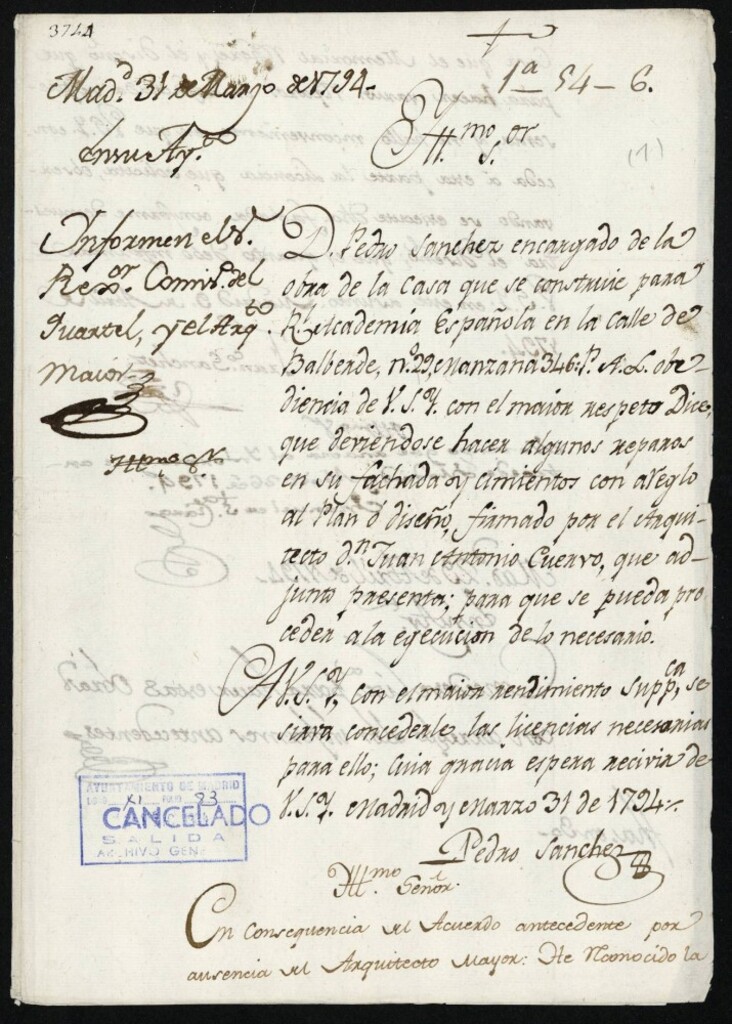 3744
1ª 54 - 6.
Mad.d 31 de Marzo de 1794.
Yll.mo S.or
En su Ay.to
(1)
Informen el S.r
Rex.or Comis.o del
Quartel, y el Arq.to
maior
Yllmo Sr
D. Pedro Sanchez encargado de la
obra de la Casa que se construie para
R.l Academia Española en la calle de
Balberde, n.o 29, Manzana 346: P. A. L. obe-
diencia de V.S.Y. con el maior respeto Dice,
que deviendose hacer algunos reparos
en su fachada y cimientos con areglo
al Plan ó diseño, firmado por el Arqui-
tecto d.n Juan Antonio Cuervo, que ad-
junto presenta; para que se pueda pro
ceder a la egecucion de lo necesario.
A V.S.Y. con el maior rendimiento supp.ca se
sirva concederle las licencias necesarias
para ello; cuia gracia espera recivir de
V.S.Y. Madrid y Marzo 31 de 1794.
Pedro Sanchez
AYUNTAMIENTO DE MADRID
XI 93
CANCELADO
SALIDA
ARCHIVO GEN
Yll.mo Señor.
En Consequencia del Acuerdo antecedente por
ausencia del Arquitecto Mayor: He Reconocido la